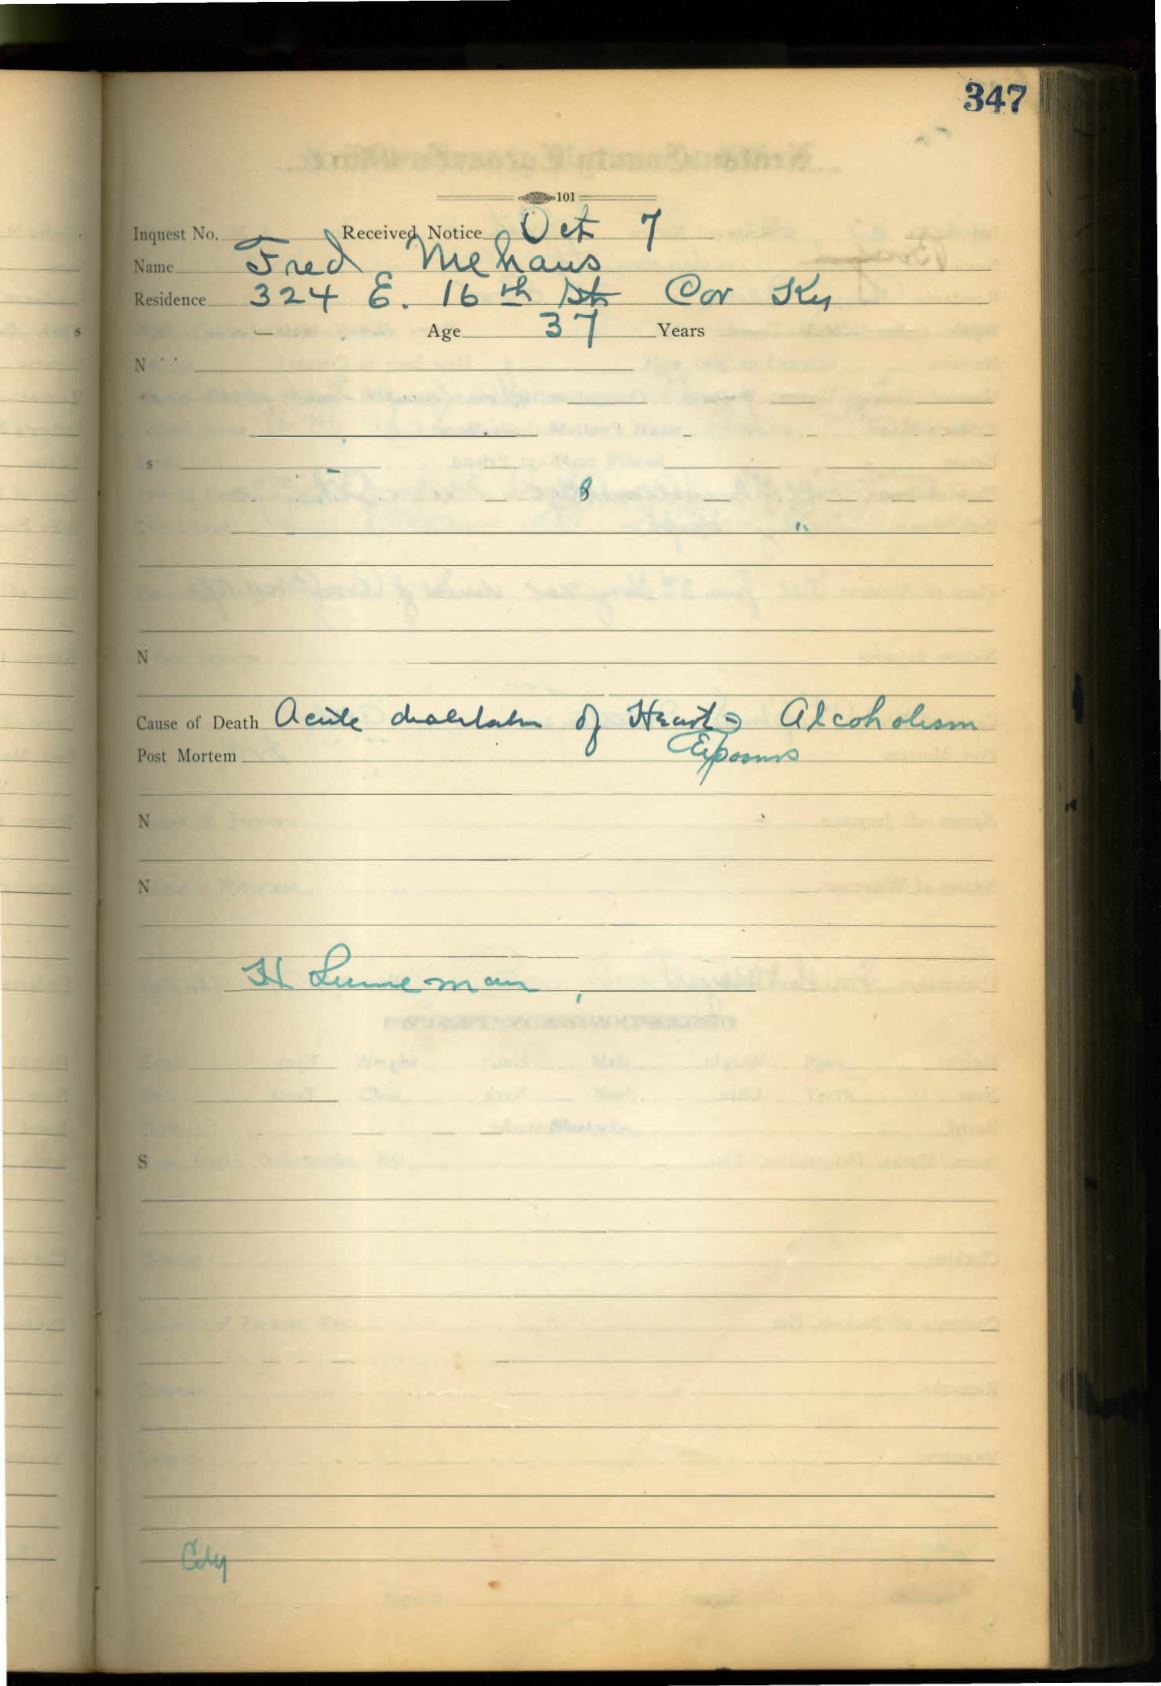 347
101
Inquest No. Received Notice Oct 7
Name Fred Mehaus
Residence 324 E. 16 th St Cov Ky
Age 37 Years
N
s
8
N
Cause of Death Acute of Heart Alcoholism
Post Mortem
N
N
H Luneman
S
City